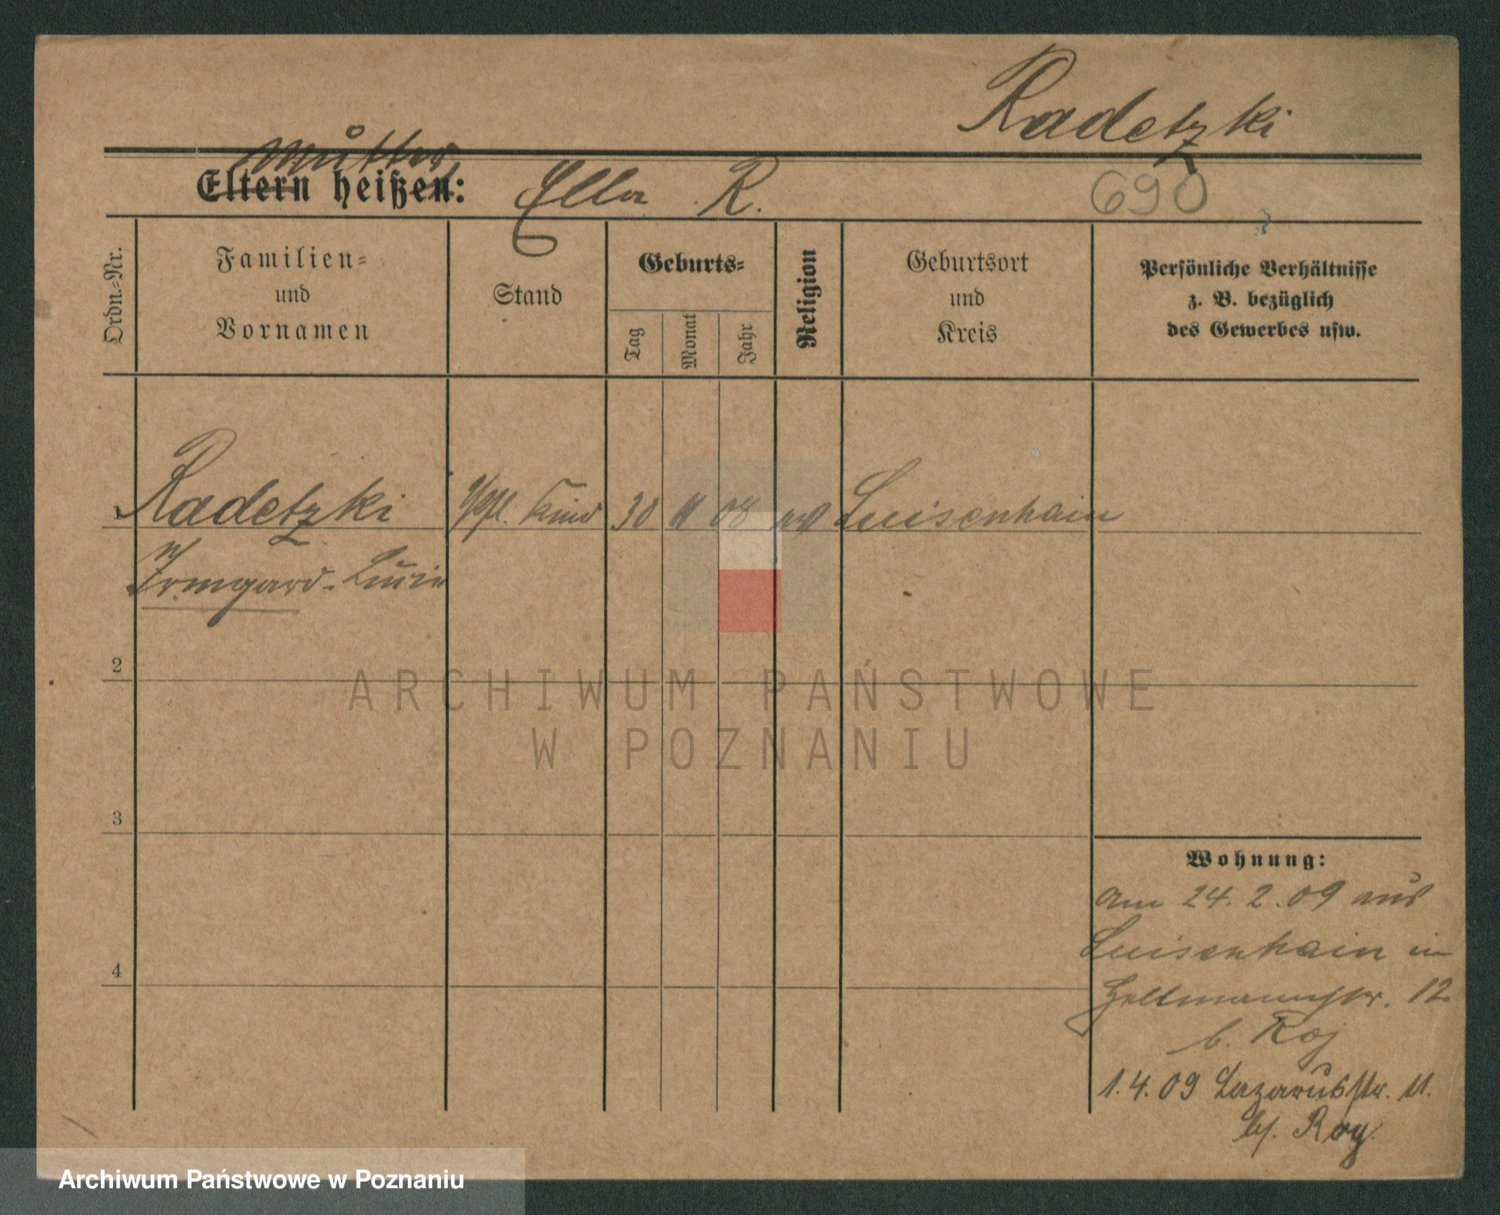 Radetzki
Mutter
Eltern heißen: Ella R.
690
Ordn.-Nr.
Familien-
und
Vornamen
Stand
Geburts-
Tag
Monat
Jahr
Religion
Geburtsort
und
Kreis
Persönliche Verhältnisse
z. B. bezüglich
des Gewerbes usw.
Radetzki Kind 30 11 08 Luisenhain
Irmgard-Lucie
2
3
4
Wohnung:
am 24. 2. 09 aus
Luisenhain in
12
b. Roj
1. 4. 09 Lazarusstr. 11.
bj. Roy
ARCHIWUM PAŃSTWOWE
W POZNANIU
Archiwum Państwowe w Poznaniu